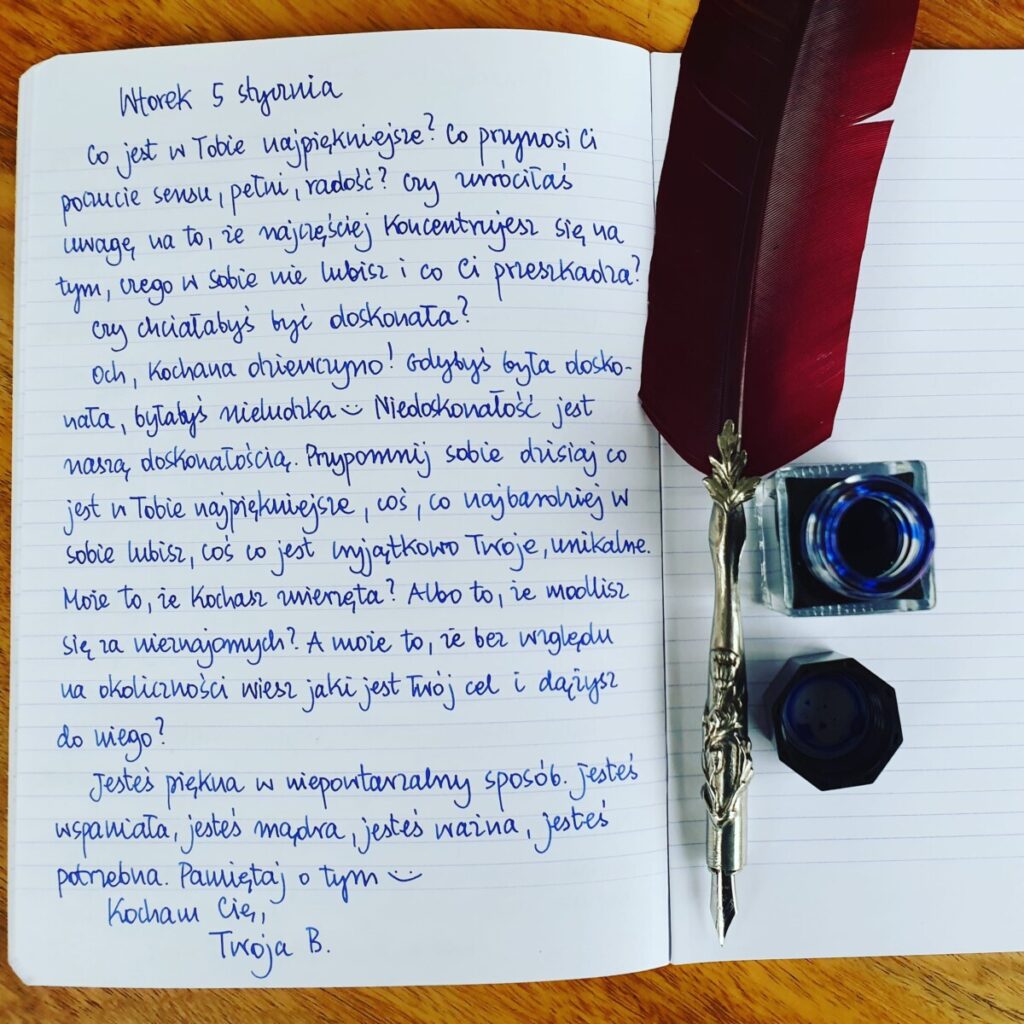 Wtorek 5 stycznia
Co jest w Tobie najpiękniejsze? Co przynosi Ci
poczucie sensu, pełni, radość? Czy zwróciłaś
uwagę na to, że najczęściej koncentrujesz się na
tym, czego w sobie nie lubisz i co Ci przeszkadza?
Czy chciałabyś być doskonała?
Och, Kochana dziewczyno! Gdybyś była dosko-
nała, byłabyś nieludzka Niedoskonałość jest
naszą doskonałością. Przypomnij sobie dzisiaj co
jest w Tobie najpiękniejsze, coś, co najbardziej w
sobie lubisz, coś co jest wyjątkowo Twoje, unikalne.
Może to, że Kochasz zwierzęta? Albo to, że modlisz
się za nieznajomych? A może to, że bez względu
na okoliczności wiesz jaki jest Twój cel i dążysz
do niego?
Jesteś piękna w niepowtarzalny sposób. Jesteś
wspaniała, jesteś mądra, jesteś ważna, jesteś
potrzebna. Pamiętaj o tym
Kocham Cię,
Twoja B.